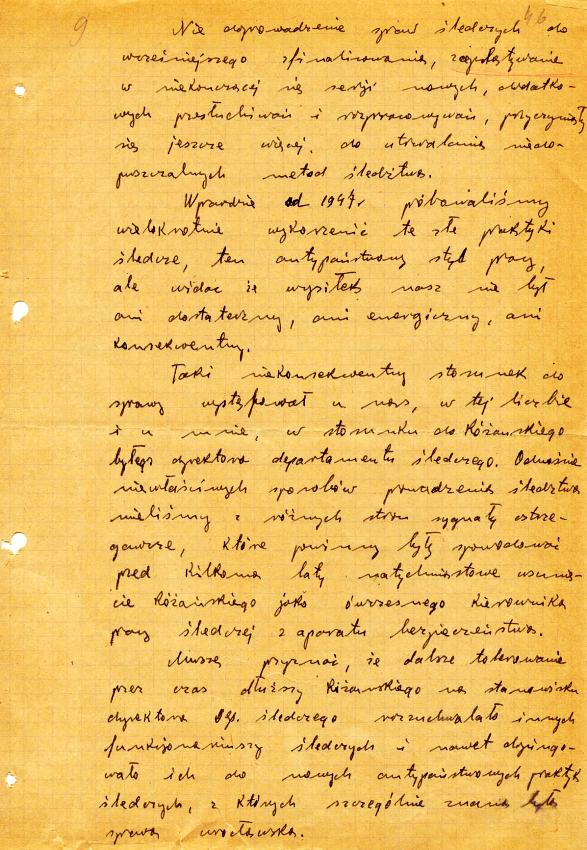 9 46
Nie doprowadzenie spraw śledczych do
wcześniejszego sfinalizowania, zaplątywanie
w niekończącej się serji nowych, dodatko-
wych przesłuchiwań i rozpracowywań, przyczyniały
się jeszcze więcej, do utrwalania niedo-
puszczalnych metod śledztwa.
Wprawdzie od 1947r próbowaliśmy
wielokrotnie wykorzenić te złe praktyki
śledcze, ten antypaństwowy styl pracy,
ale widać że wysiłek nasz nie był
ani dostateczny, ani energiczny, ani
konsekwentny.
Taki niekonsekwentny stosunek do
sprawy występował u nas, w tej liczbie
i u mnie, w stosunku do Różańskiego
byłego dyrektora departamentu śledczego. Odnośnie
niewłaściwych sposobów prowadzenia śledztwa
mieliśmy z różnych stron sygnały ostrze-
gawcze, które powinny były spowodować
przed kilkoma laty natychmiastowe usunię-
cie Różańskiego jako ówczesnego kierownika
pracy śledczej z aparatu bezpieczeństwa.
Muszę przyznać, że dalsze tolerowanie
przez czas dłuższy Różańskiego na stanowisku
dyrektora Dep. śledczego rozzuchwalało innych
funkcjonariuszy śledczych i nawet dopingo-
wało ich do nowych antypaństwowych praktyk
śledczych, z których szczególnie znana była
sprawa wrocławska.